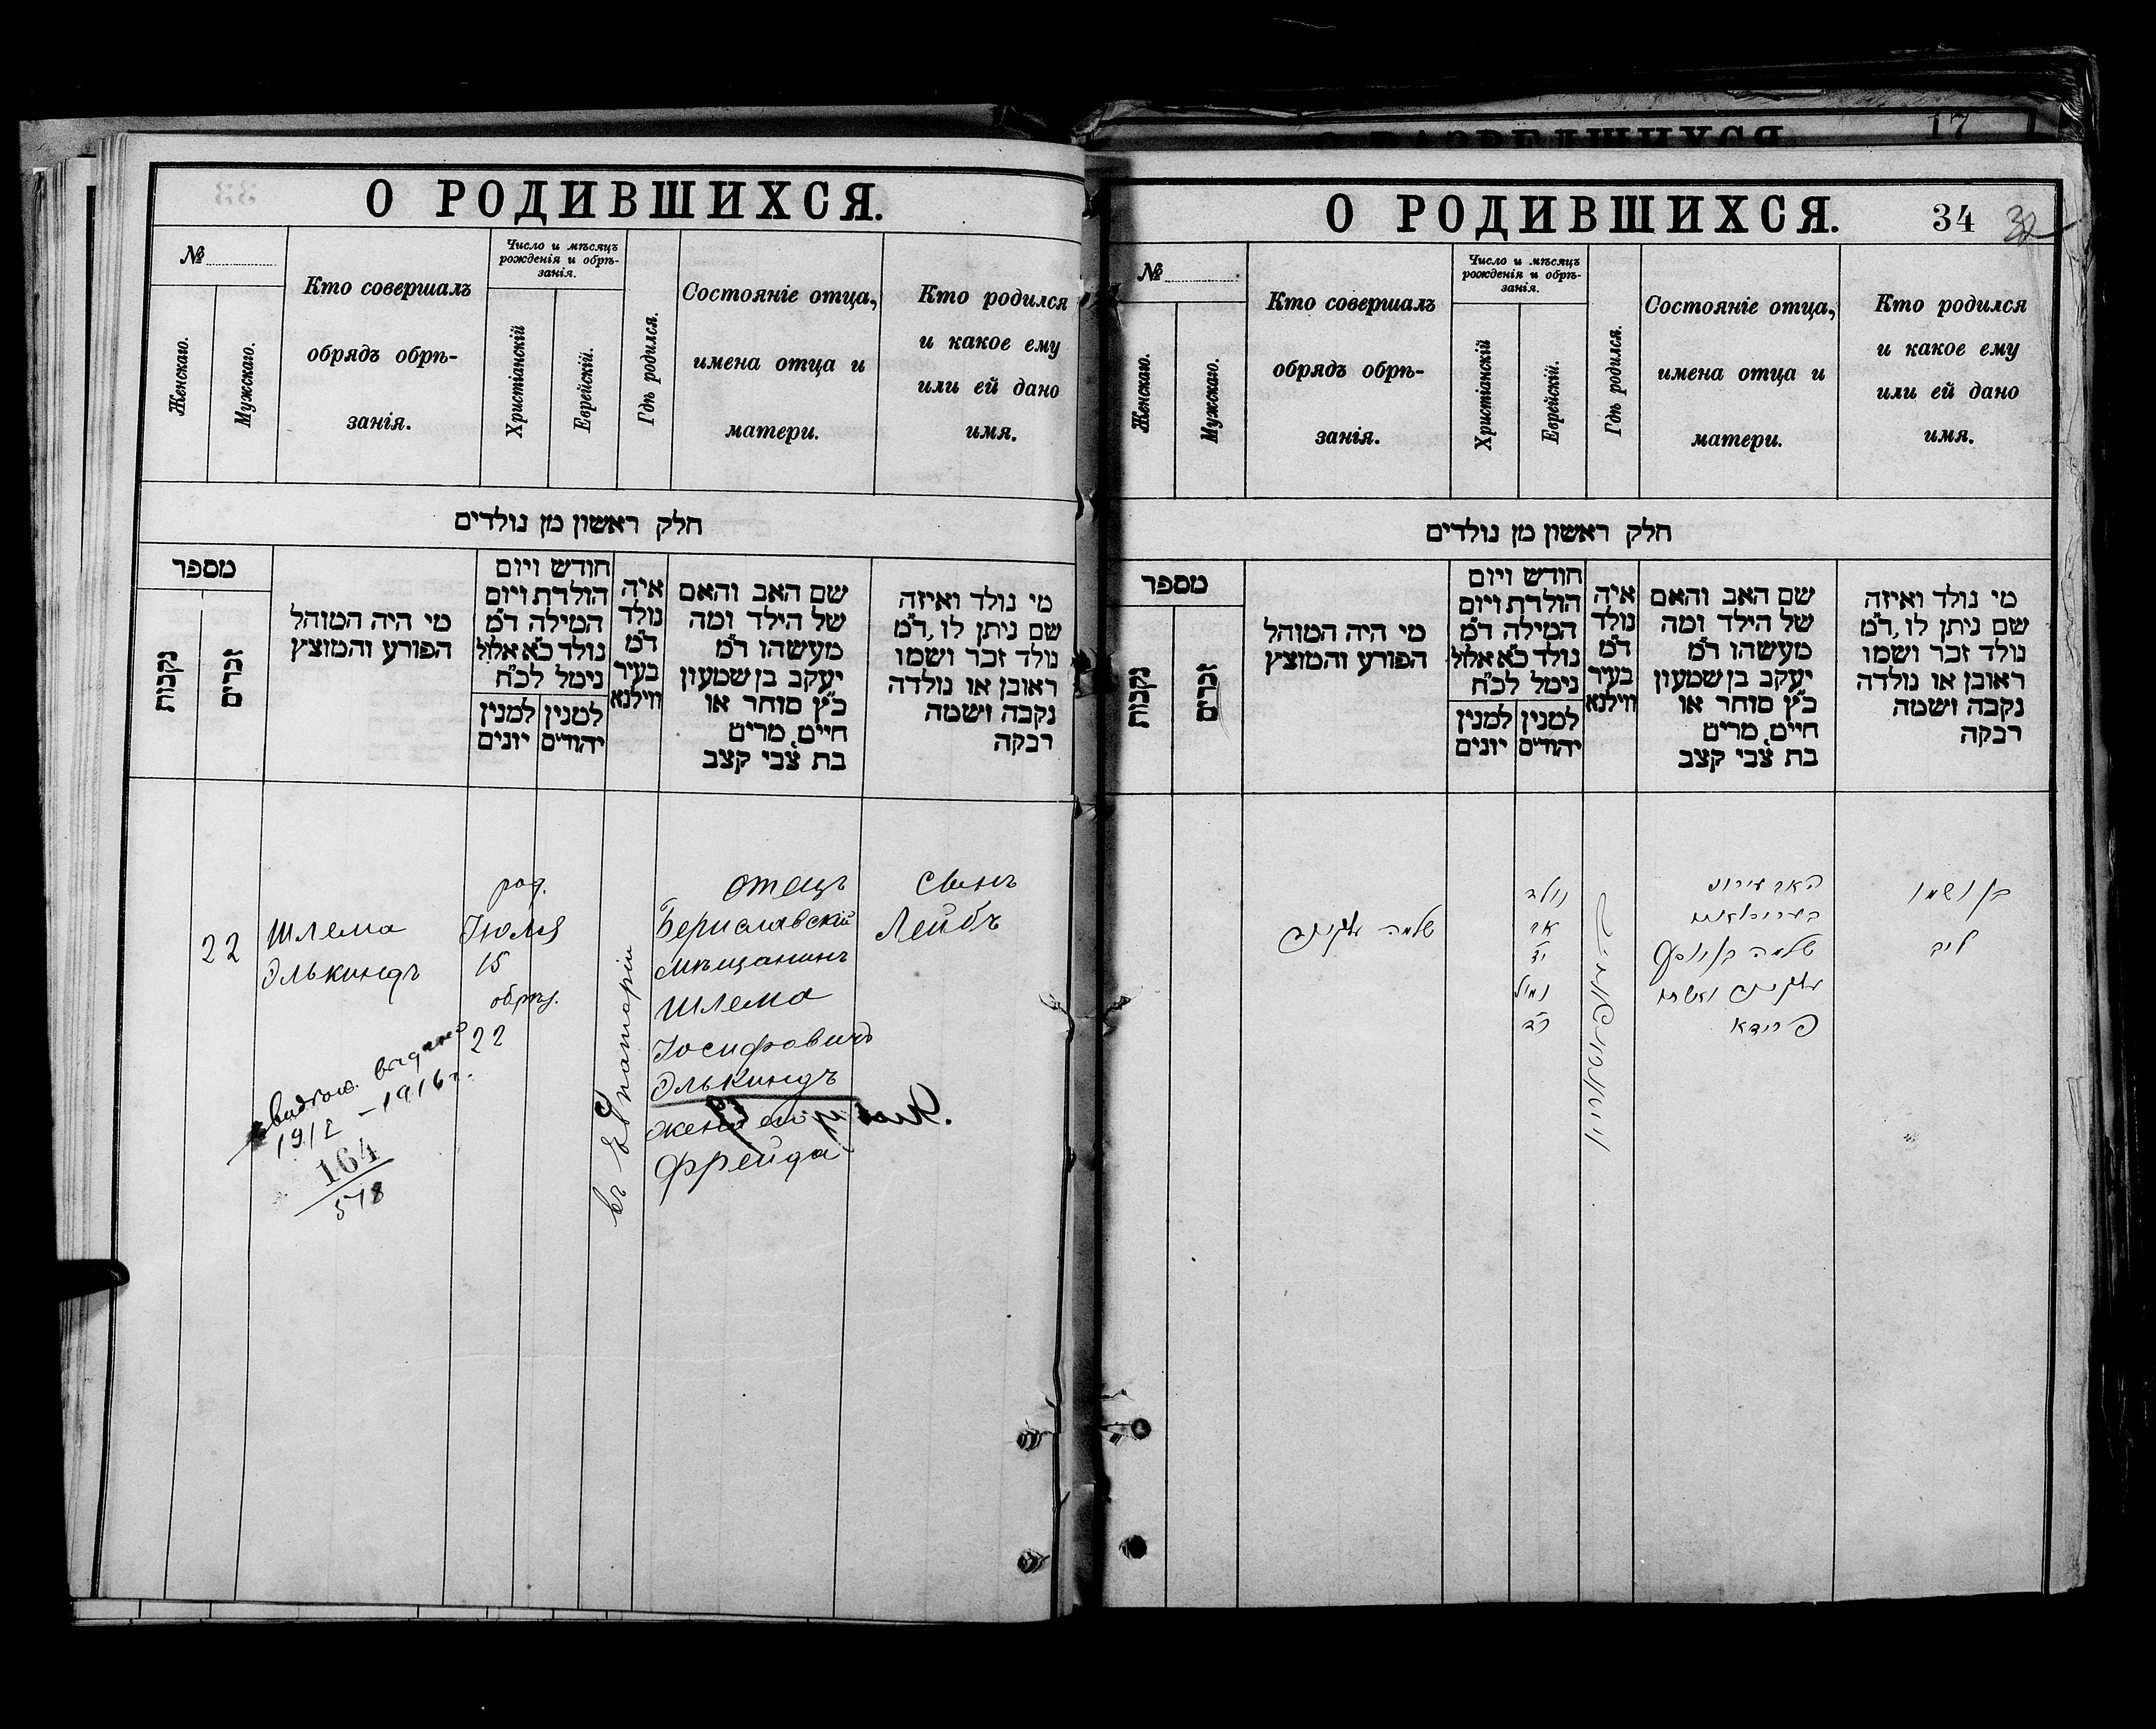 О РОДИВШИХСЯ.
№
Женскаго.
Мужскаго.
Кто совершалъ
обрядъ обрѣ-
занія.
Число и мѣсяцъ
рожденія и обрѣ-
занія.
Христіанскій
Еврейскій.
Гдѣ родился.
Состояніе отца,
имена отца и
матери.
Кто родился
и какое ему
или ей дано
имя.
חלק ראשון מן נולדים
מספר
נקבות
זכרים
מי היה המוהל
הפורע והמוצץ
חודש ויום
הולדת ויום
המילה ד״מ
נולד כ״א אלול
נימל לכ״ח
למנין יהודים
למנין יונים
איה
נולד
ד״מ
בעיר
ווילנא
שם האב והאם
של הילד ומה
מעשהו ד״מ
יעקב בן שמעון
כ״ץ סוחר או
חייט, מרים
בת צבי קצב
מי נולד ואיזה
שם ניתן לו, ד״מ
נולד זכר ושמו
ראובן או נולדה
נקבה ושמה
רבקה
22
Шлема
Элькиндъ
род.
Іюля
15
обрѣз.
22
въ Евпаторіи
отецъ
Бериславскій
мѣщанинъ
Шлема
Іосифовичъ
Элькиндъ
жена его
Фрейда
сынъ
Лейбъ
1912 – 1916 г.
164
578
17
О РОДИВШИХСЯ.
34
32
№
Женскаго.
Мужскаго.
Кто совершалъ
обрядъ обрѣ-
занія.
Число и мѣсяцъ
рожденія и обрѣ-
занія.
Христіанскій
Еврейскій.
Гдѣ родился.
Состояніе отца,
имена отца и
матери.
Кто родился
и какое ему
или ей дано
имя.
חלק ראשון מן נולדים
מספר
נקבות
זכרים
מי היה המוהל
הפורע והמוצץ
חודש ויום
הולדת ויום
המילה ד״מ
נולד כ״א אלול
נימל לכ״ח
למנין יהודים
למנין יונים
איה
נולד
ד״מ
בעיר
ווילנא
שם האב והאם
של הילד ומה
מעשהו ד״מ
יעקב בן שמעון
כ״ץ סוחר או
חייט, מרים
בת צבי קצב
מי נולד ואיזה
שם ניתן לו, ד״מ
נולד זכר ושמו
ראובן או נולדה
נקבה ושמה
רבקה
שלמה עלקינד
נולד
אב
נמול
האב
שלמה בן יוסף
עלקינד ואשתו
פריידא
בן ושמו
ליב